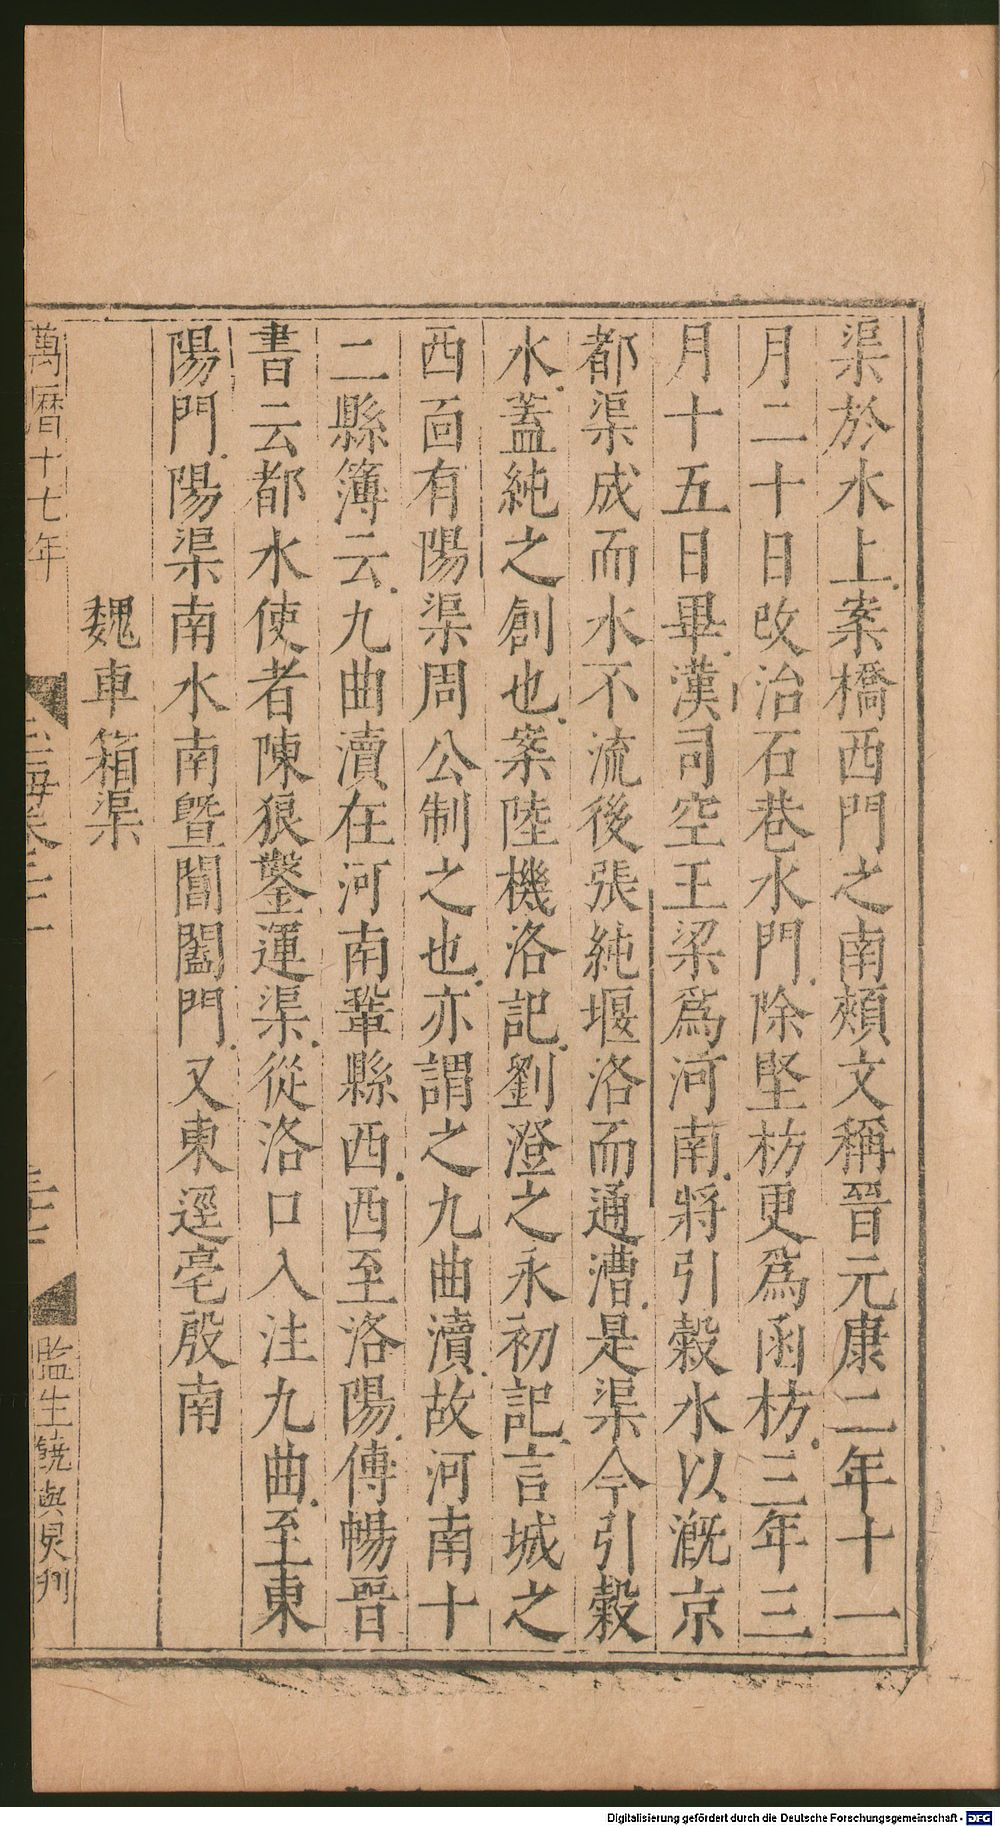 渠於水上案橋西門之南頰文稱晉元康二年十一
月二十日改治石巷水門除竪枋更爲函枋三年三
月十五日畢漢司空王梁爲河南將引穀水以漑京
都渠成而水不流後張純堰洛而通漕是渠今引穀
水蓋純之創也案陸機洛記劉澄之永初記言城之
西面有陽渠周公制之也亦謂之九曲瀆故河南十
二縣簿云九曲瀆在河南鞏縣西西至洛陽傅暢晉
書云都水使者陳狼鑿運渠從洛口入注九曲至東
陽門陽渠南水南曁閶闔門又東逕亳殷南
魏車箱渠
萬曆十七年
監生
Digitalisierung gefördert durch die Deutsche Forschungsgemeinschaft - DFG